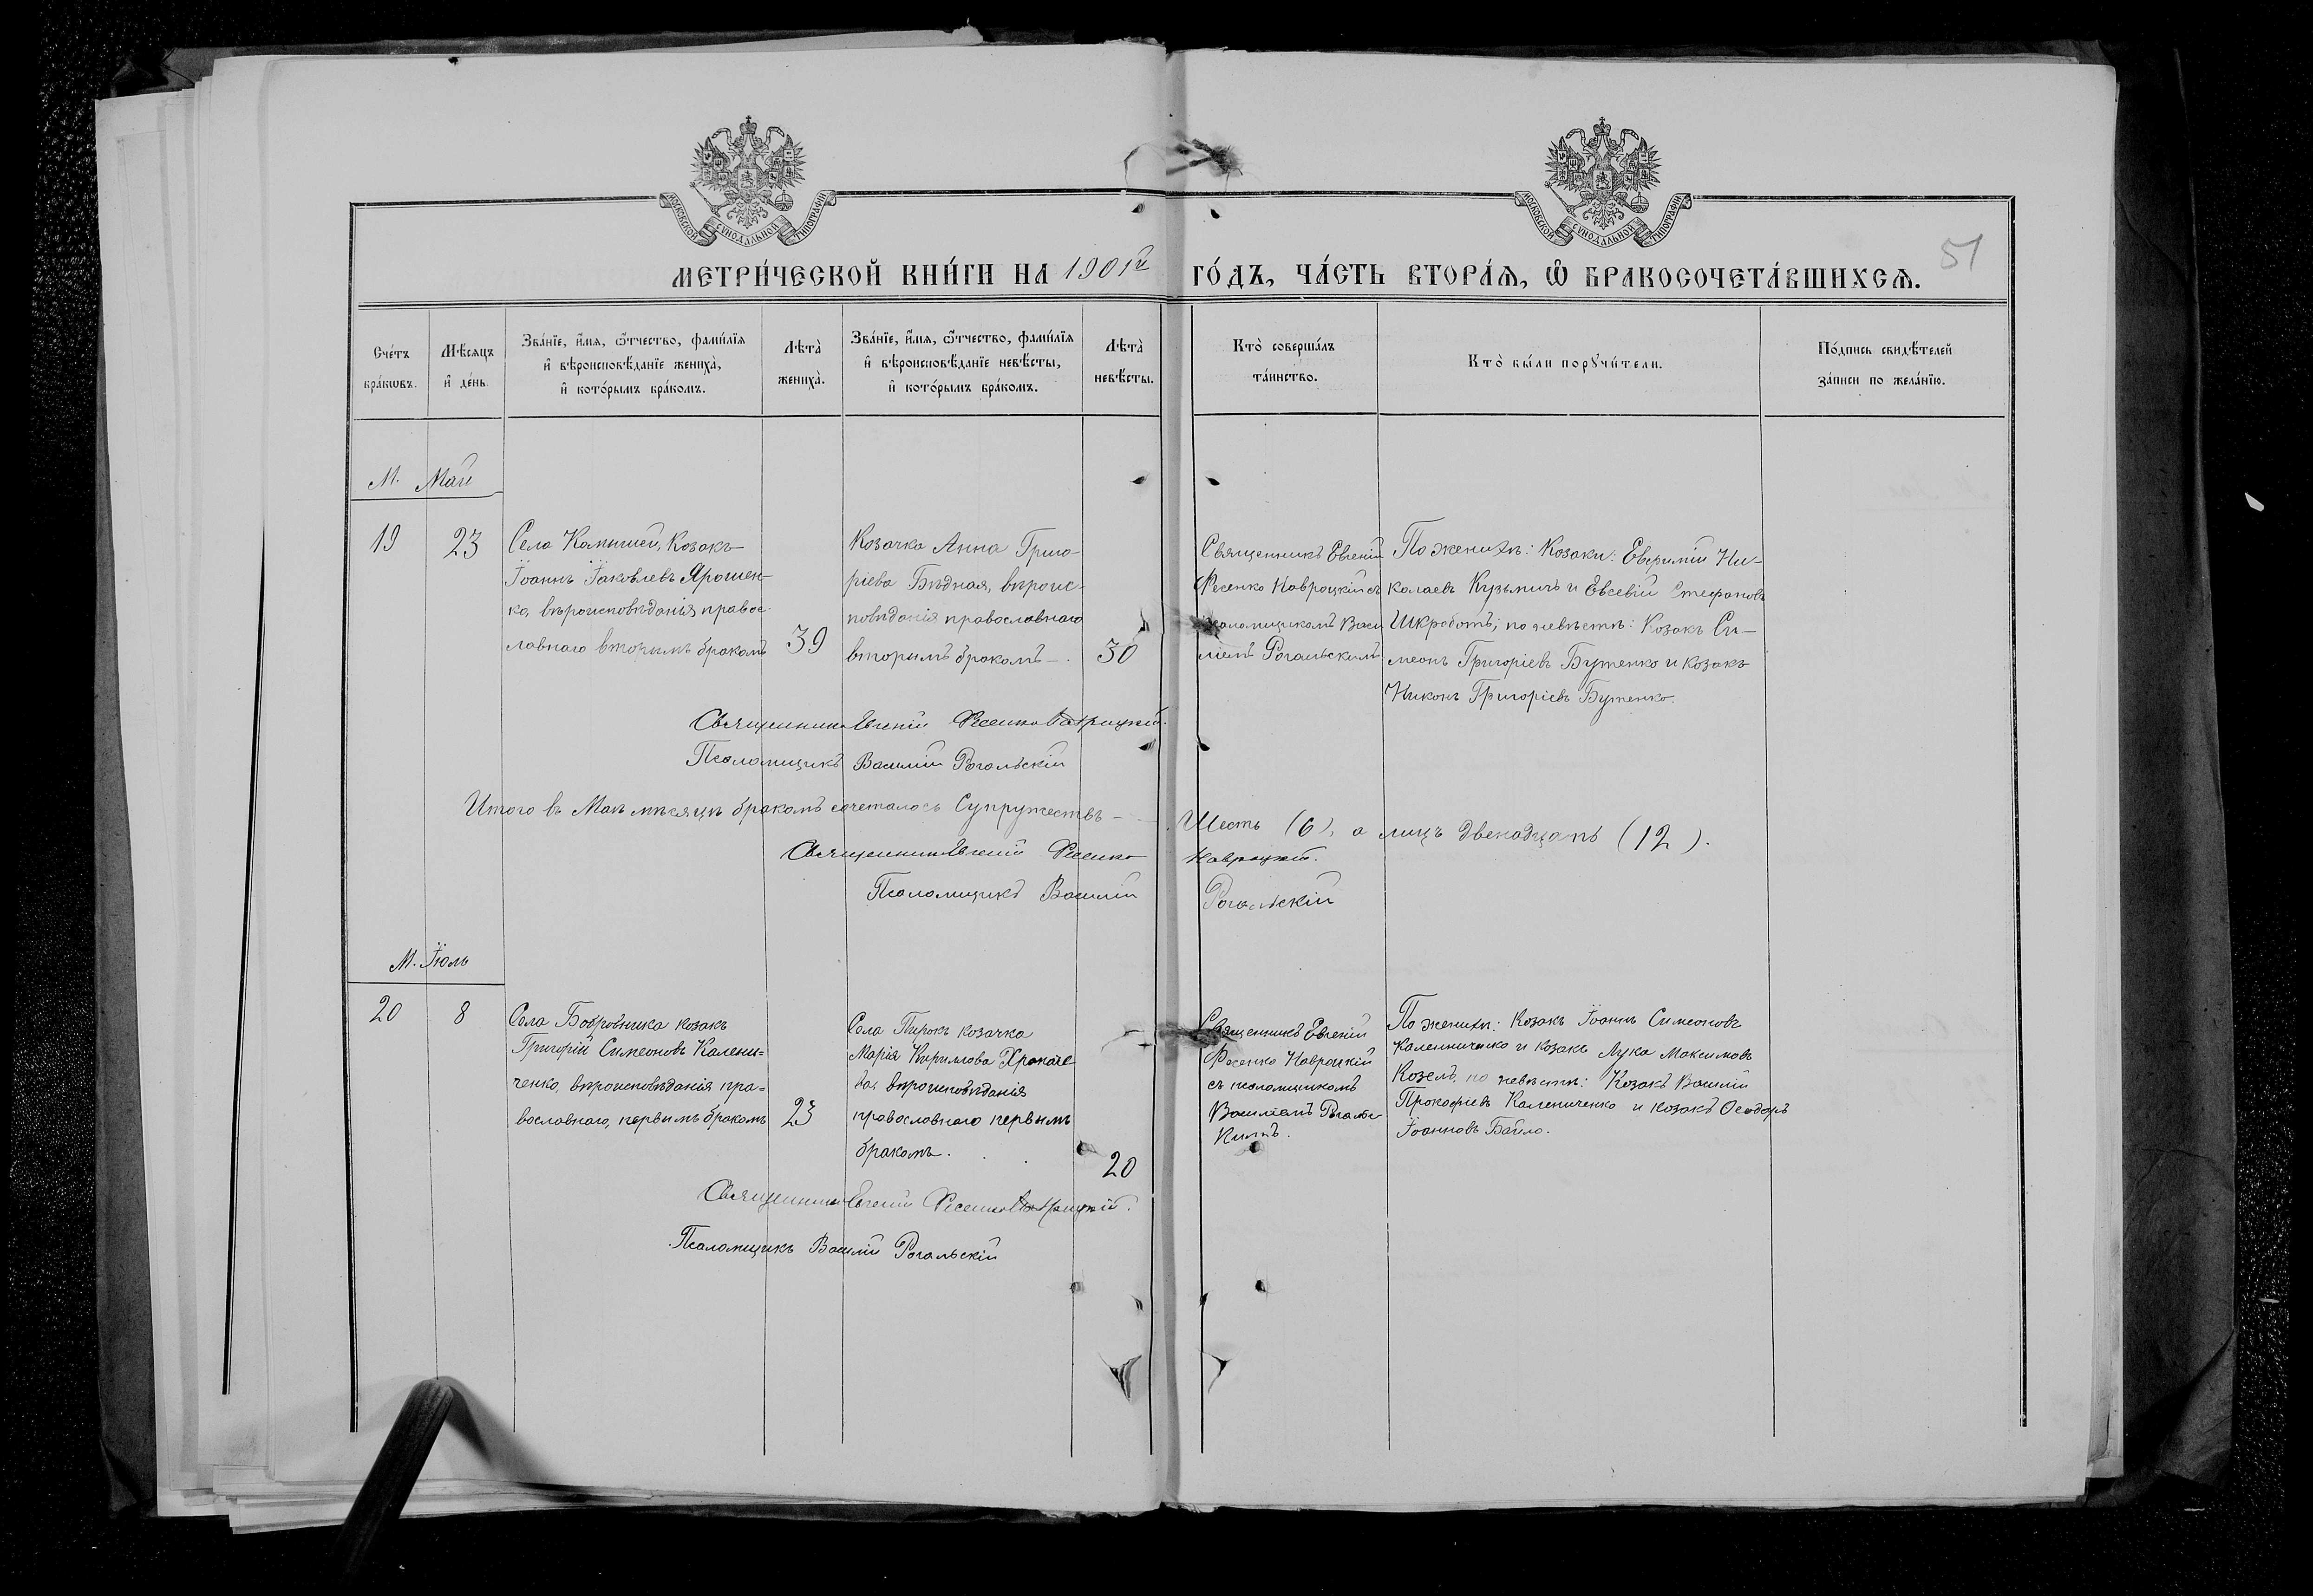 МОСКОВСКОЙ СѴНОДАЛЬНОЙ ТИПОГРАФІИ
МОСКОВСКОЙ СѴНОДАЛЬНОЙ ТИПОГРАФІИ
51
МЕТРИ́ЧЕСКОЙ КНИ́ГИ НА 1901й ГО́ДЪ, ЧА́СТЬ ВТОРА́Ѧ, Ѽ БРАКОСОЧЕТА́ВШИХСѦ.
Сче́тъ
бра́кѡвъ.
Мѣ́сѧцъ
и҆ де́нь.
Зва́нїе, и҆́мѧ, ѻ҆́тчество, фами́лїѧ
и҆ вѣроисповѣ́данїе жениха̀,
и҆ кото́рымъ бра́комъ.
Лѣта̀
жениха̀.
Зва́нїе, и҆́мѧ, ѻ҆́тчество, фами́лїѧ
и҆ вѣроисповѣ́данїе невѣ́сты,
и҆ кото́рымъ бра́комъ.
Лѣта̀
невѣ́сты.
Кто̀ соверша́лъ
та́инство.
Кто̀ бы́ли порꙋчи́тели.
По́дпись свидѣ́телей
за́писи по жела́нїю.
М. Май
19
23
Села Камышей, Козакъ
Іоаннъ Іаковлевъ Ярошен-
ко, вѣроисповѣданія правос-
лавнаго вторымъ бракомъ
39
Козачка Анна Григо-
ріева Бѣдная, вѣроис-
повѣданія православнаго
вторымъ бракомъ —.
30
Священникъ Евгеній
Фесенко Навроцкій съ
псаломщикомъ Васи
ліемъ Рогальскимъ
По женихѣ: Козаки: Евфимій Ни-
колаевъ Кузьмичъ и Евсевій Стефановъ
Шкроботъ; по невѣстѣ: Козакъ Си-
меонъ Григоріевъ Бутенко и козакъ
Никонъ Григоріевъ Бутенко.
Священникъ Евгеній Фесенко Навроцкій.
Псаломщикъ Василій Рогальскій
Итого въ Маѣ мѣсяцѣ бракомъ сочеталось Супружествъ — Шесть (6), а лицъ двенадцать (12).
Священникъ Евгеній Фесенко Навроцкій.
Псаломщикъ Василій Рогальскій
М. Іюль
20
8
Села Бобровника козакъ
Григорій Симеоновъ Калени=
ченко, вѣроисповѣданія пра=
вославнаго, первымъ бракомъ
23
Села Пирокъ козачка
Марія Кирилова
вѣроисповѣданія
православнаго первымъ
бракомъ.
20
Священникъ Евгеній
Фесенко Навроцкій
съ псаломщикомъ
Василіемъ Рогальс-
кимъ.
По женихѣ: Козакъ Іоаннъ Симеоновъ
Каленниченко и козакъ Лука Максимовъ
Козелъ, по невѣстѣ: Козакъ Василій
Прокофіевъ Калениченко и козакъ Ѳеодоръ
Іоанновъ Байло.
Священникъ Евгеній Фесенко Навроцкій.
Псаломщикъ Василій Рогальскій